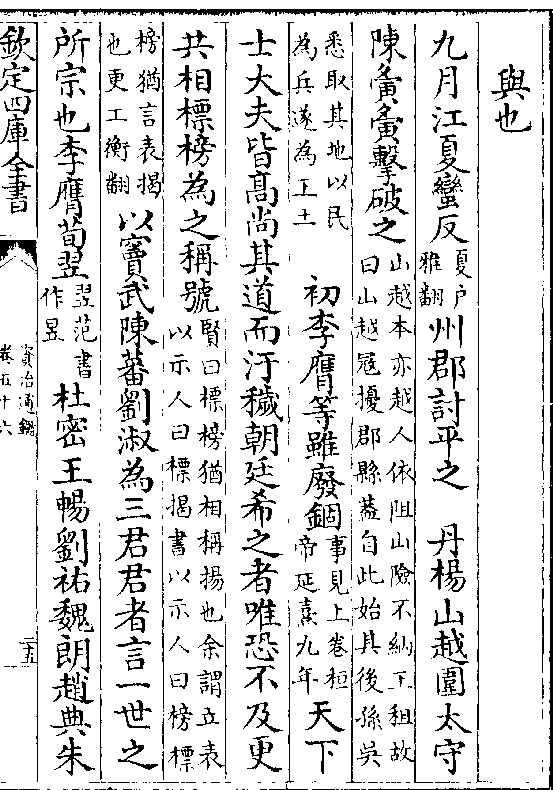 與也
九月江夏蠻反夏户雅翻州郡討平之　丹楊山越圍太守
陳夤夤擊破之山越本亦越人依阻山險不納王租故曰山越寇擾郡縣蓋自此始其後孫吳
悉取其地以民為兵遂為王土　初李膺等雖廢錮事見上卷桓帝延熹九年天下
士大夫皆髙尚其道而汙穢朝廷希之者唯恐不及更
共相標榜為之稱號賢曰標榜猶相稱揚也余謂立表以示人曰標揭書以示人曰榜標
榜猶言表揭也更工衡翻以竇武陳蕃劉淑為三君君者言一世之
所宗也李膺荀翌翌范書作昱杜密王暢劉祐魏朗趙典朱
欽定四庫全書
資治通鑑
卷五十六